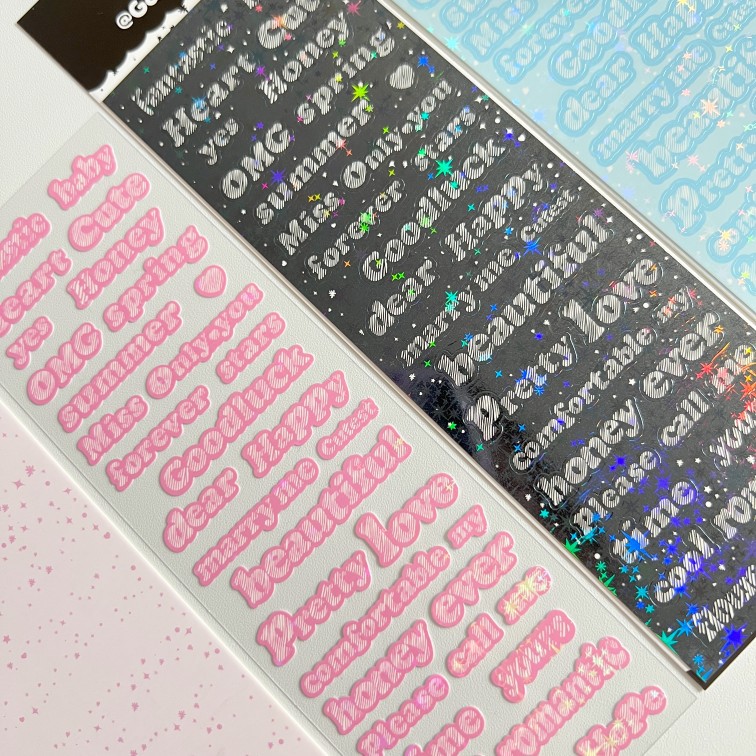 baby
Cute
Heart
Honey
yes
OMG spring
summer
Miss Only.you
forever stars
Goodluck
dear Happy
marry me Cutest
beautiful
Pretty love
comfortable my
honey ever
please call me
time yours
romantic
Hope
fantastic
Heart Cute
yes Honey
OMG spring
summer
Miss Only.you
forever stars
Goodluck
dear Happy
marry me Cutest
beautiful
Pretty love
comfortable my
honey ever
please call me
time
cool
Miss
forever
Goodluck
dear
marry me
beautiful
Pretty